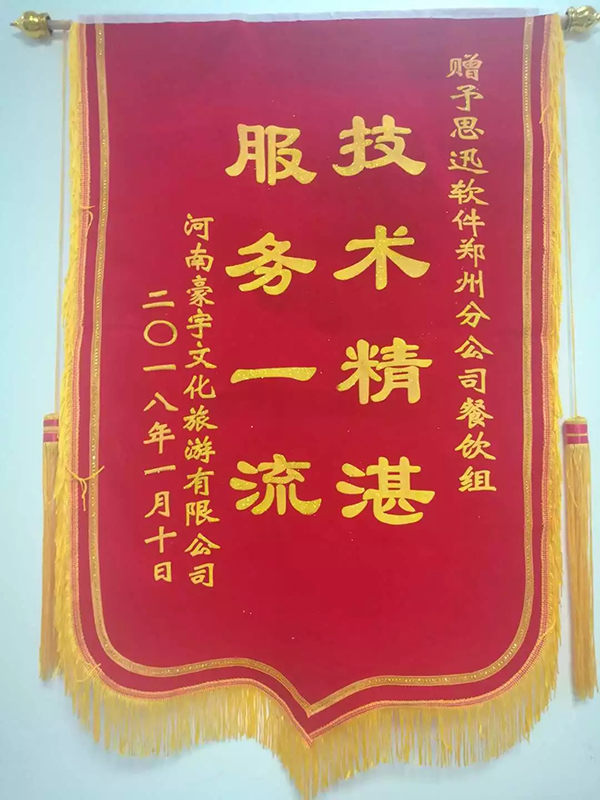 赠予思迅软件郑州分公司餐饮组
技术精湛
服务一流
河南豪宇文化旅游有限公司
二〇一八年一月十日